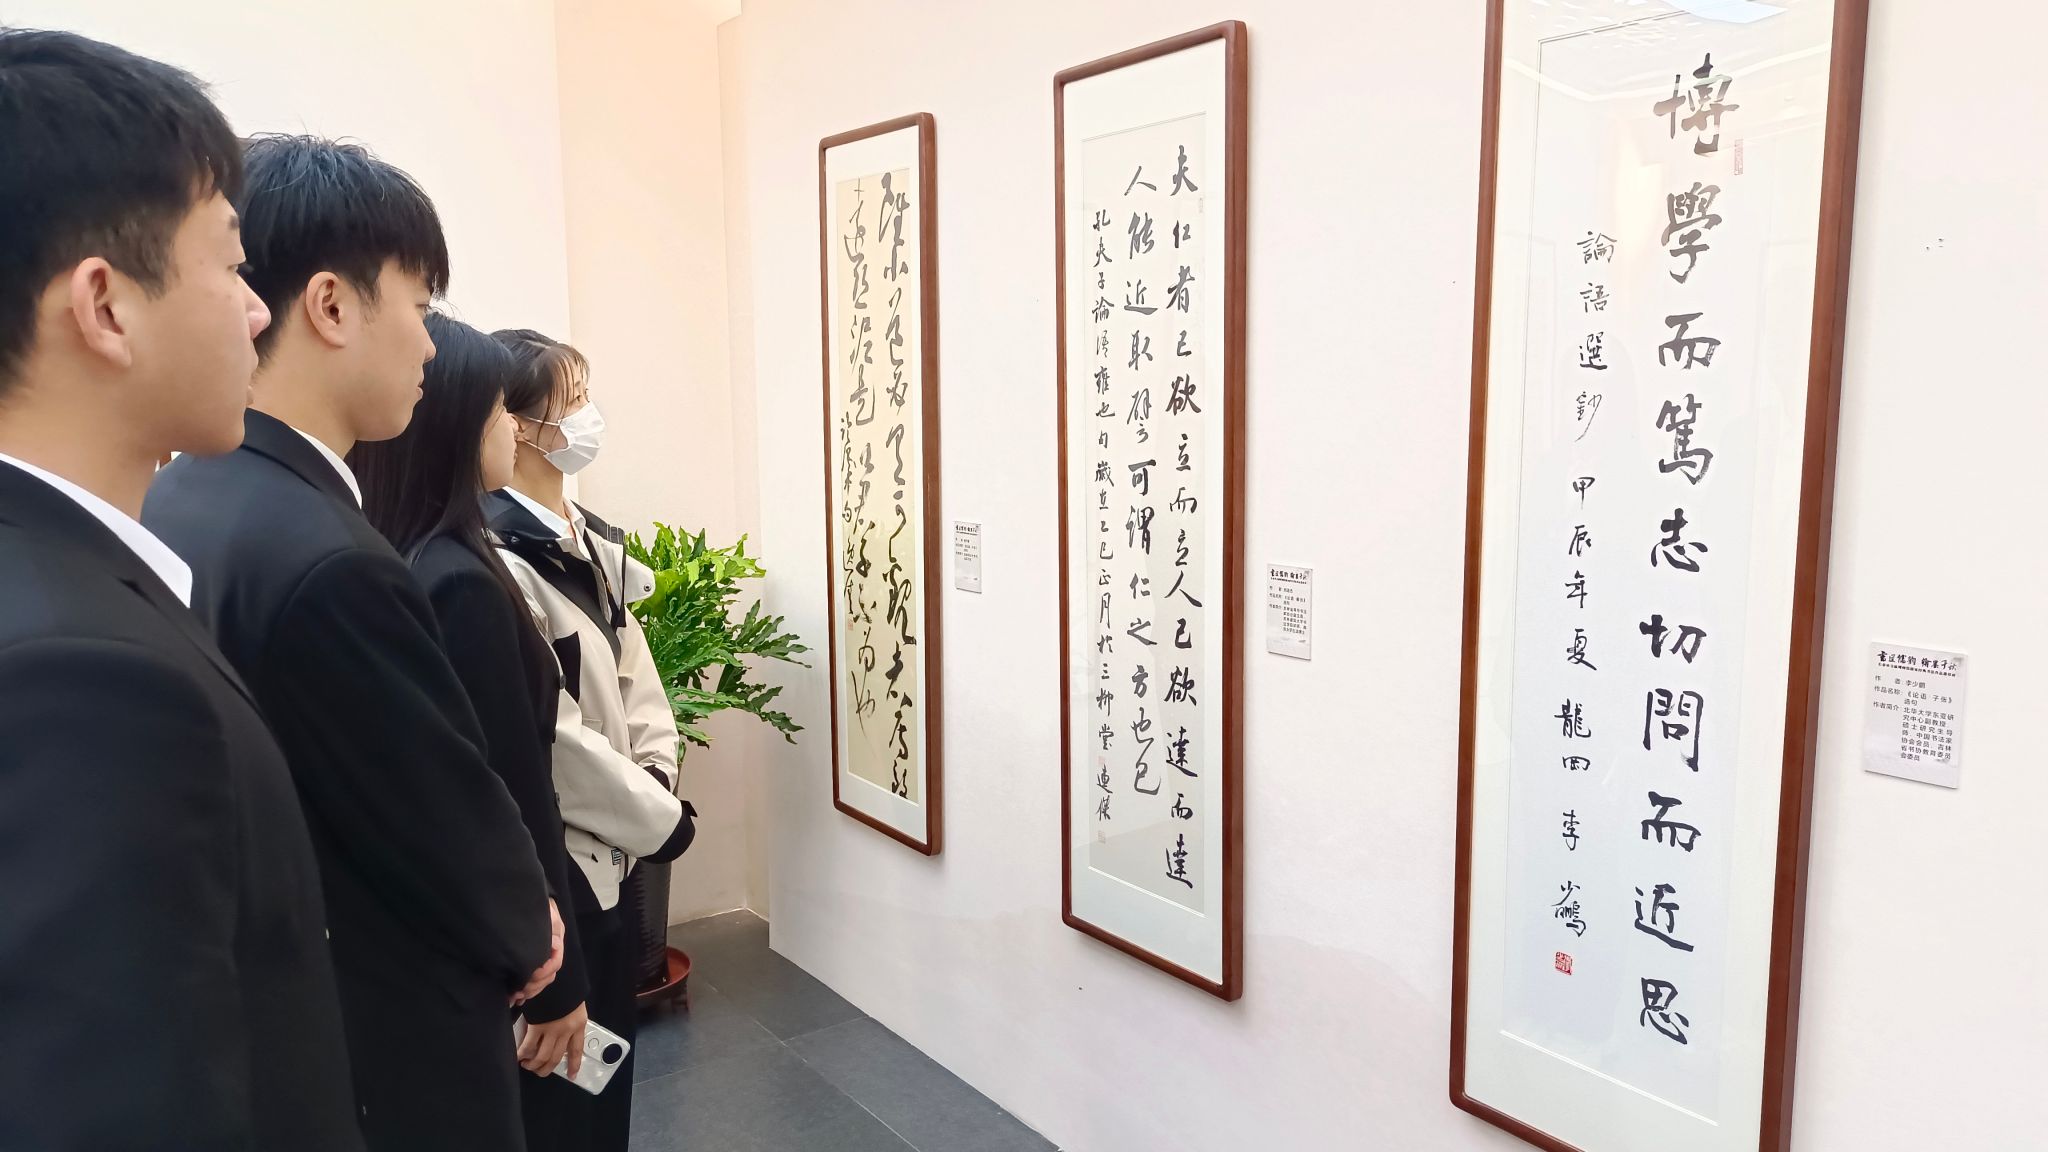 博學而篤志切問而近思
論語選鈔 甲辰年夏 龍西 李少鵬
夫仁者己欲立而立人己欲達而達
人能近取譬可謂仁之方也已
孔夫子論語雍也句歲在乙巳正月於三柳堂 連傑
雖小道必有可觀者焉致
遠恐泥是以君子不為也
翰墨千秋
作 者:李少鹏
作品名称:《论语·子张》
选句
作者简介:北华大学东亚研
究中心副教授、
硕士研究生导
师、中国书法家
协会会员、吉林
省书协教育委员
会委员